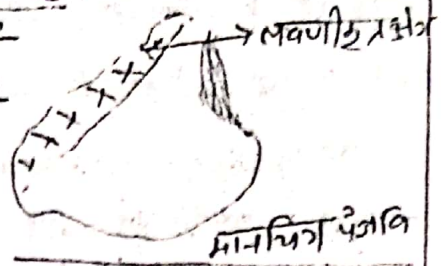 लवणीकृत क्षेत्र
मानचित्र पंजाब